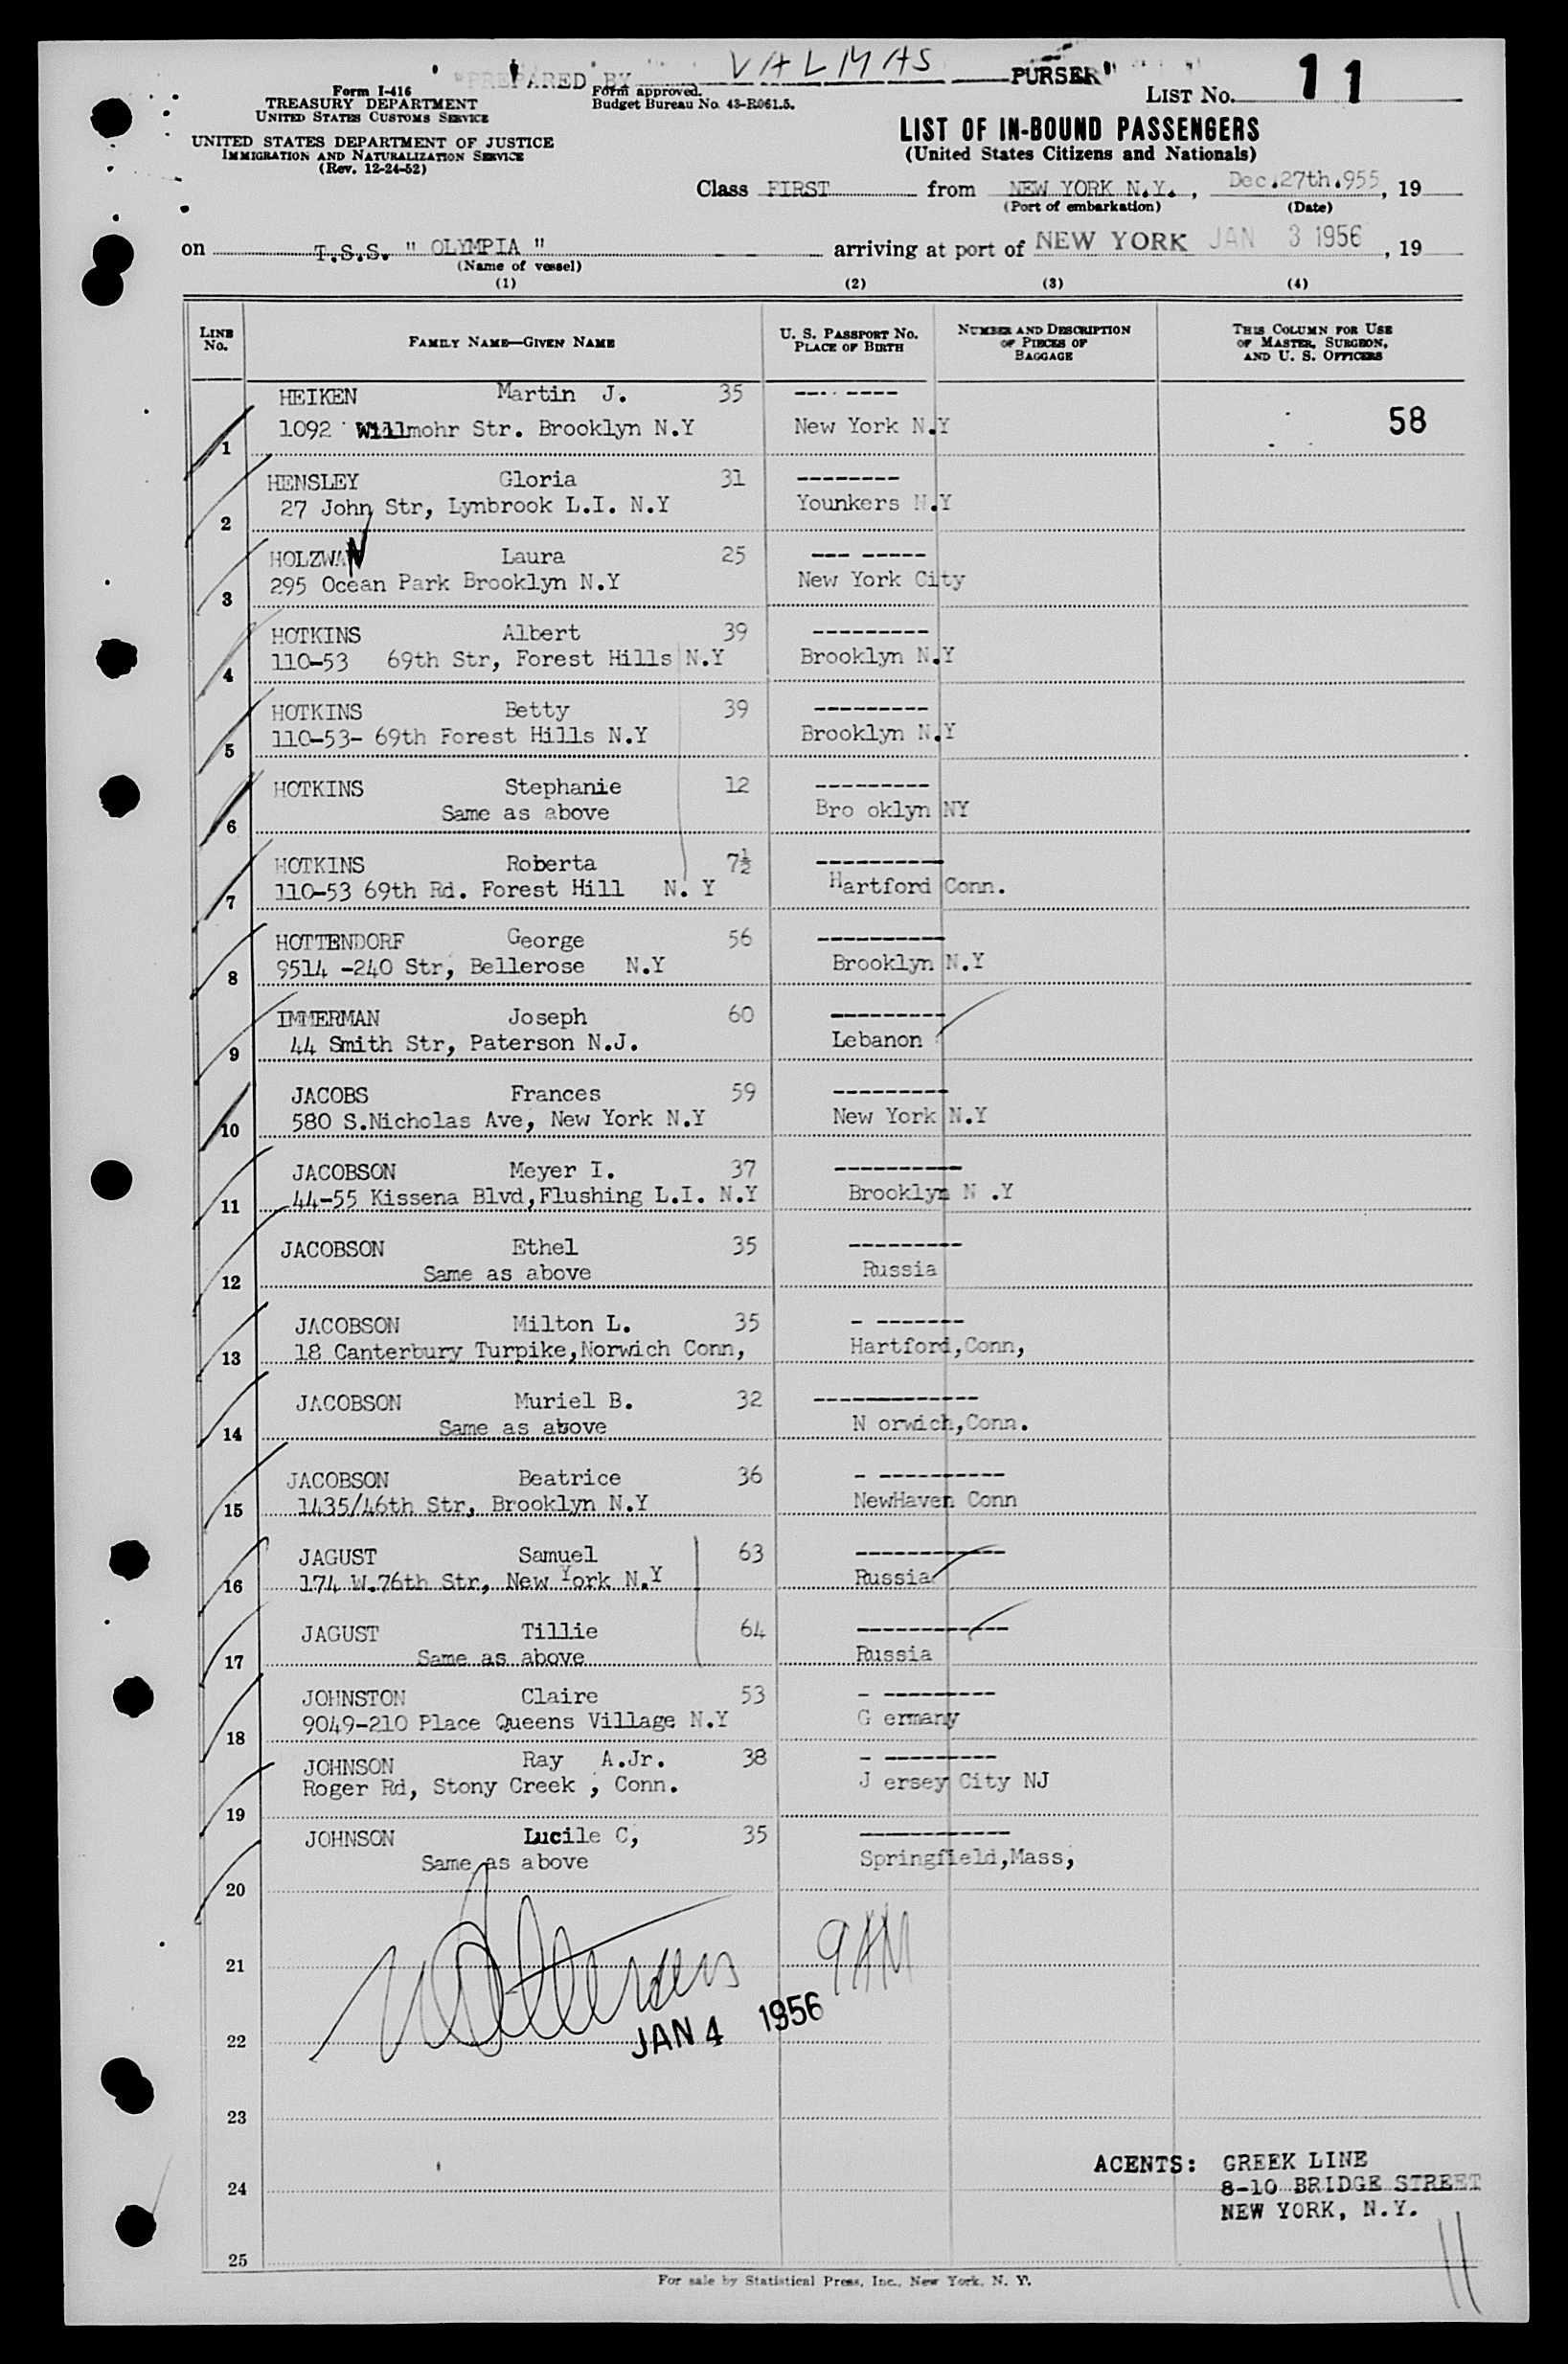 "PREPARED BY VALMAS PURSER"
Form I-416
TREASURY DEPARTMENT
UNITED STATES CUSTOMS SERVICE
Form approved.
Budget Bureau No. 43-R061.5.
LIST NO. 11
UNITED STATES DEPARTMENT OF JUSTICE
IMMIGRATION AND NATURALIZATION SERVICE
(Rev. 12-24-52)
LIST OF IN-BOUND PASSENGERS
(United States Citizens and Nationals)
Class FIRST from NEW YORK N.Y., Dec.27th.955, 19
(Port of embarkation) (Date)
on T.S.S. " OLYMPIA " arriving at port of NEW YORK JAN 3 1956, 19
(Name of vessel)
(1) (2) (3) (4)
LINE NO. FAMILY NAME—GIVEN NAME U. S. PASSPORT NO. PLACE OF BIRTH NUMBER AND DESCRIPTION OF PIECES OF BAGGAGE THIS COLUMN FOR USE OF MASTER, SURGEON, AND U. S. OFFICERS
HEIKEN Martin J. 35 --- ----
1 1092 Willmohr Str. Brooklyn N.Y New York N.Y 58
HENSLEY Gloria 31 --------
2 27 John Str, Lynbrook L.I. N.Y Younkers N.Y
HOLZWAN Laura 25 --- -----
3 295 Ocean Park Brooklyn N.Y New York City
HOTKINS Albert 39 ---------
4 110-53 69th Str, Forest Hills N.Y Brooklyn N.Y
HOTKINS Betty 39 ---------
5 110-53- 69th Forest Hills N.Y Brooklyn N.Y
HOTKINS Stephanie 12 ---------
6 Same as above Bro oklyn NY
HOTKINS Roberta 7½ ----------
7 110-53 69th Rd. Forest Hill N. Y Hartford Conn.
HOTTENDORF George 56 ----------
8 9514 -240 Str, Bellerose N.Y Brooklyn N.Y
IMMERMAN Joseph 60 ---------
9 44 Smith Str, Paterson N.J. Lebanon
JACOBS Frances 59 ---------
10 580 S.Nicholas Ave, New York N.Y New York N.Y
JACOBSON Meyer I. 37 ----------
11 44-55 Kissena Blvd,Flushing L.I. N.Y Brooklyn N .Y
JACOBSON Ethel 35 ---------
12 Same as above Russia
JACOBSON Milton L. 35 - -------
13 18 Canterbury Turpike,Norwich Conn, Hartford,Conn,
JACOBSON Muriel B. 32 -------------
14 Same as above N orwich,Conn.
JACOBSON Beatrice 36 - ----------
15 1435/46th Str, Brooklyn N.Y NewHaven Conn
JAGUST Samuel 63 ------------
16 174 W.76th Str, New York N.Y Russia
JAGUST Tillie 64 ------------
17 Same as above Russia
JOHNSTON Claire 53 - ---------
18 9049-210 Place Queens Village N.Y G ermany
JOHNSON Ray A.Jr. 38 - ---------
Roger Rd, Stony Creek , Conn. J ersey City NJ
19
JOHNSON Lucile C, 35 ------------
Same as above Springfield,Mass,
20
21 9AM
JAN 4 1956
22
23
ACENTS: GREEK LINE
24 8-10 BRIDGE STREET
NEW YORK, N.Y.
25
11
For sale by Statistical Press, Inc., New York, N. Y.